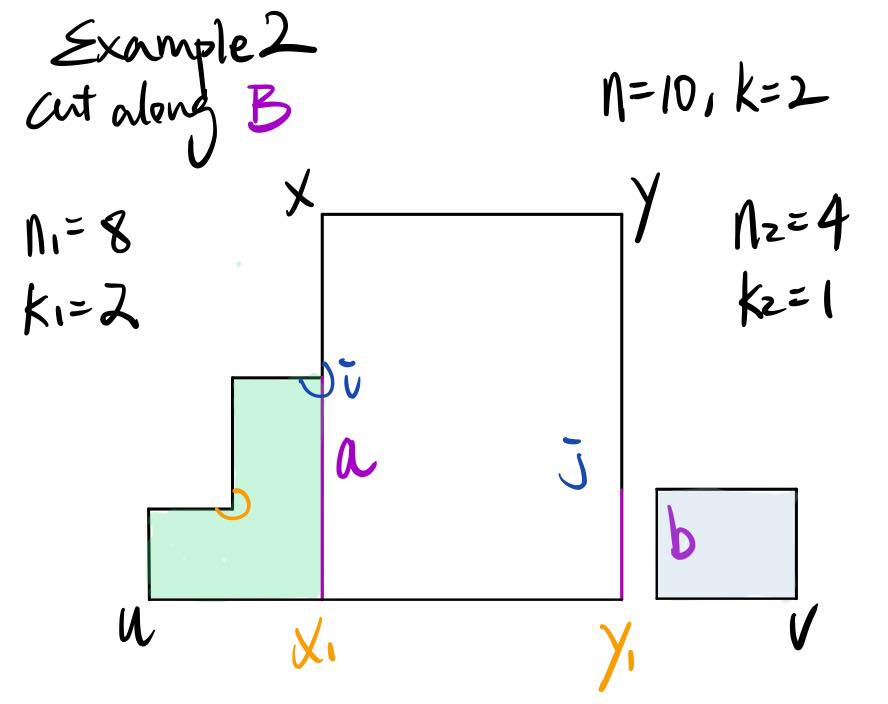 Example 2
cut along B
n=10, k=2
n₁=8
k₁=2
n₂=4
k₂=1
x
y
ī
a
j̄
b
u
x₁
y₁
v